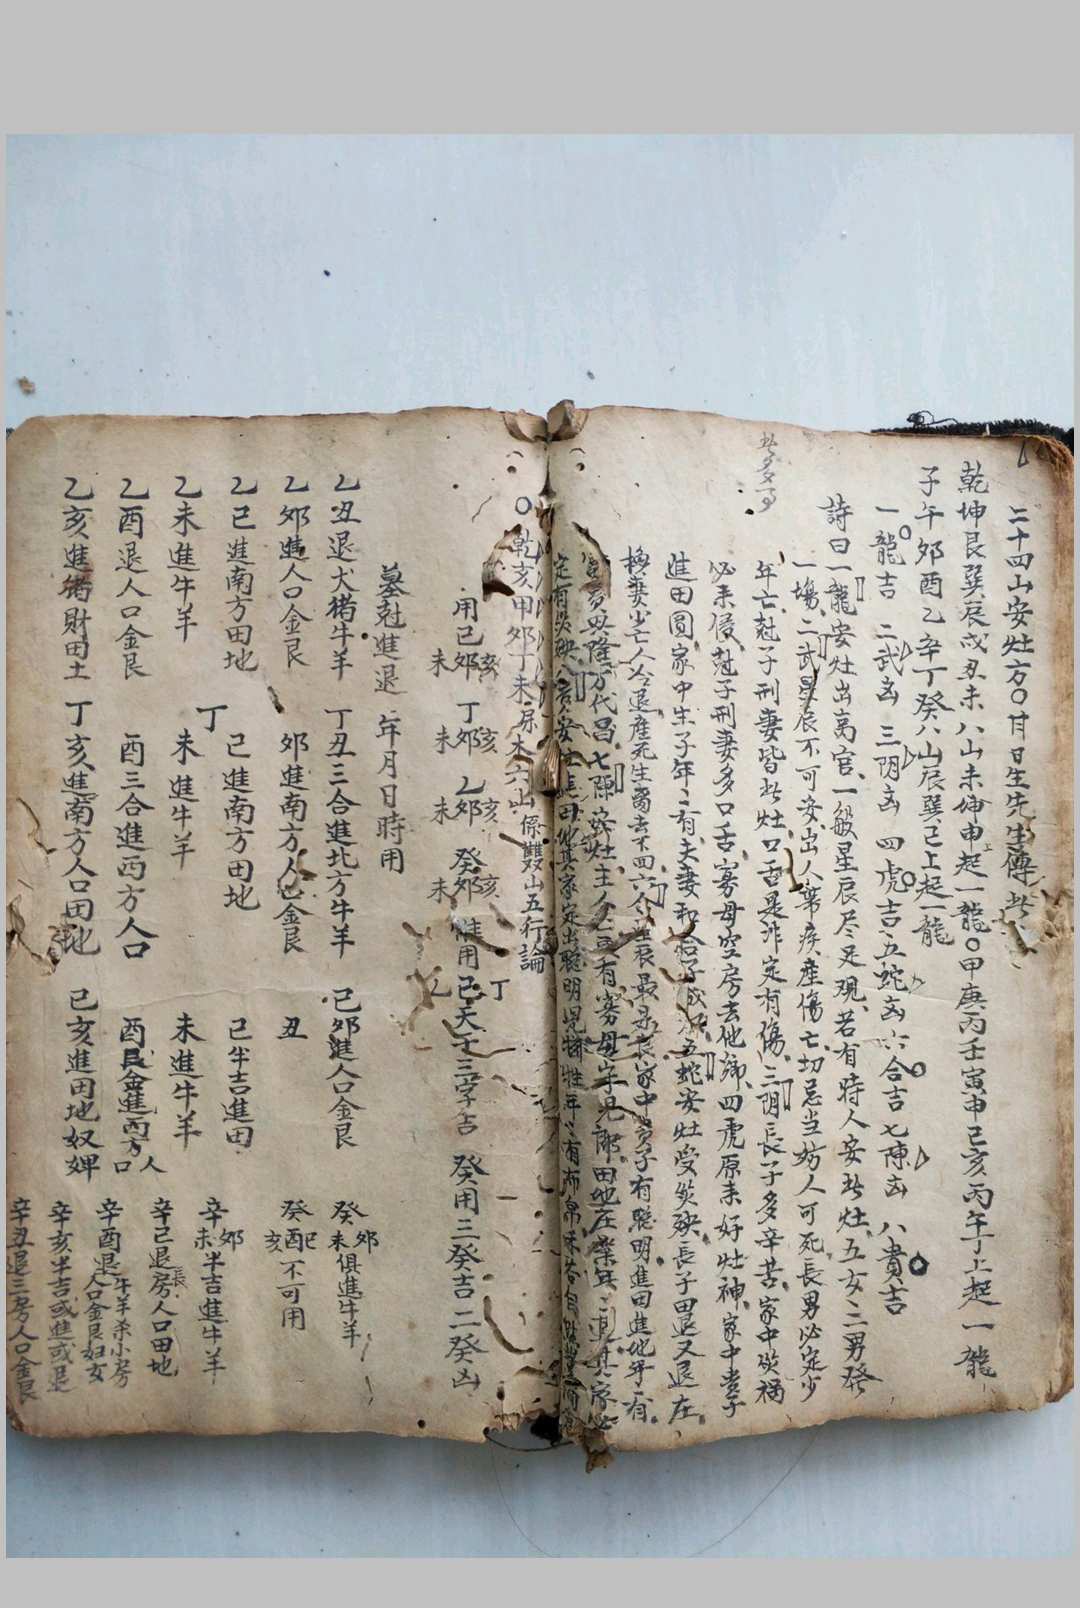 二十四山安灶方〇甘日生先生傳此
乾坤艮巽辰戌丑未八山未坤申起一龍〇甲庚丙壬寅申己亥丙午丁上起一龍
子午夘酉乙辛丁癸八山辰巽己上起一龍
一龍吉 二武凶 三阴凶 四虎吉 五蛇凶 六合吉 七陳凶 八貴吉
詩曰一龍安灶出高官一般星辰尽足現若有時人安此灶五女二男發
一塲二武星辰不可安出人患疾產傷亡切忌当妨人可死長男必定少
年亡尅子刑妻皆此灶口舌是非定有傷三阴長子多辛苦家中災禍
必来侵尅子刑妻多口舌寡母空房去他鄉四虎原来好灶神家中貴子
進田圓家中生子年年有夫妻和合子成 五蛇安灶受災殃長子田退又退庄
換妻少亡人 退產死生离去 四六合 辰最是良家中貴子有聰明進田進地年有
興隆万代昌七陳安灶主 有寡母守兒郎田地庄業年 見其家必
定有災殃八貴安灶 進田地其家定出聰明児 牲年年有布帛
〇乾亥甲夘丁未屬木六山係雙山五行論
用己亥夘未 丁亥夘未 乙亥夘未 癸亥夘未 惟用丁己乙天干三字吉 癸用三癸吉二癸凶
墓尅進退 年月日時用
乙丑退犬猪牛羊 丁丑三合進北方牛羊 己夘進人口金艮 癸夘未俱進牛羊
乙夘進人口金艮 夘進南方人口金艮 丑 癸巳酉亥不可用
乙己進南方田地 己進南方田地 己半吉進田 辛夘未半吉進牛羊
乙未進牛羊 丁未進牛羊 未進牛羊 辛己退長房人口田地
乙酉退人口金艮 酉三合進西方人口 酉艮金進西方人口 辛酉退牛羊杀小房人口金艮妇女
乙亥進猪財田土 丁亥進南方人口田地 己亥進田地奴婢 辛亥半吉或進或退
辛丑退三房人口金艮